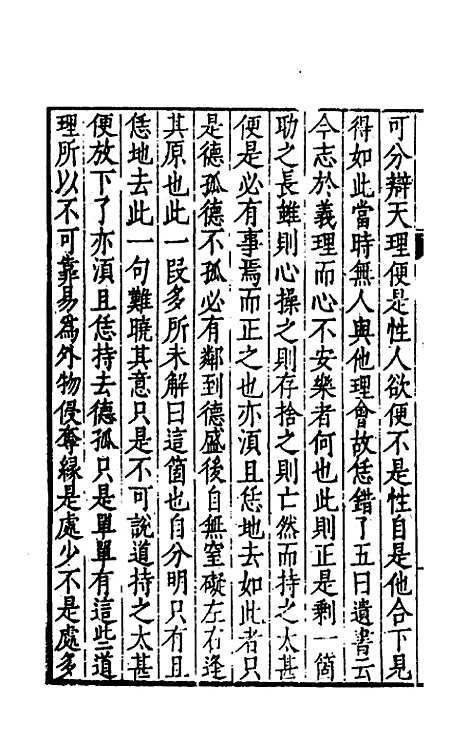 可分辯天理便是性人欲便不是性自是他合下見
得如此當時無人與他理會故恁錯了五曰遺書云
今志於義理而心不安樂者何也此則正是剩一箇
助之長雖則心操之則存捨之則亡然而持之太甚
便是必有事焉而正之也亦湏且恁地去如此者只
是德孤德不孤必有鄰到德盛後自無窒礙左右逢
其原也此一段多所未解曰這箇也自分明只有且
恁地去此一句難曉其意只是不可說道持之太甚
便放下了亦湏且恁持去德孤只是單單有這些道
理所以不可靠易爲外物侵奪緣是處少不是處多